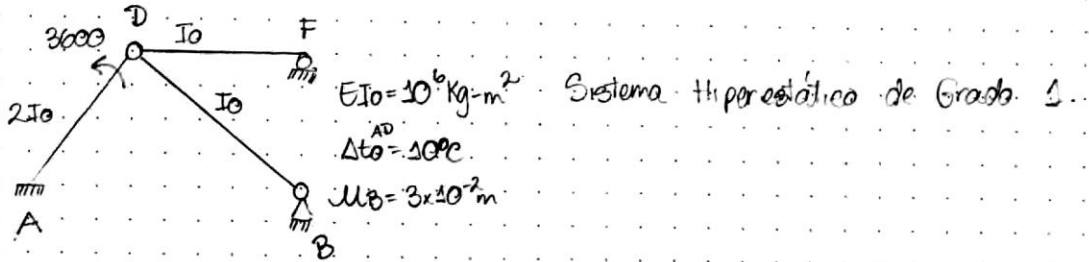 D
3600 Io F
2Io Io
EIo = 10⁶ Kg-m² Sistema Hiperestático de Grado 1.
Δto^AD = 10°C
μB = 3x10⁻² m
A
B